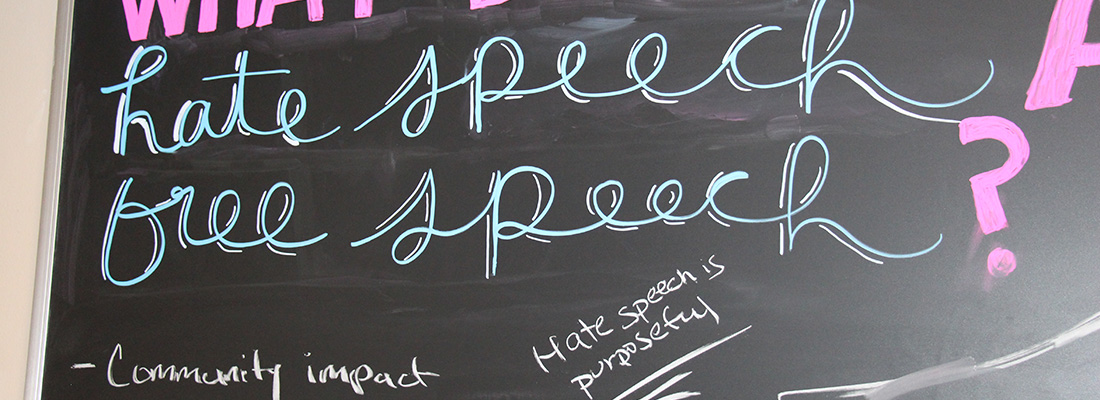 WHAT
hate speech
free speech ?
Hate speech is
purposeful
- Community impact